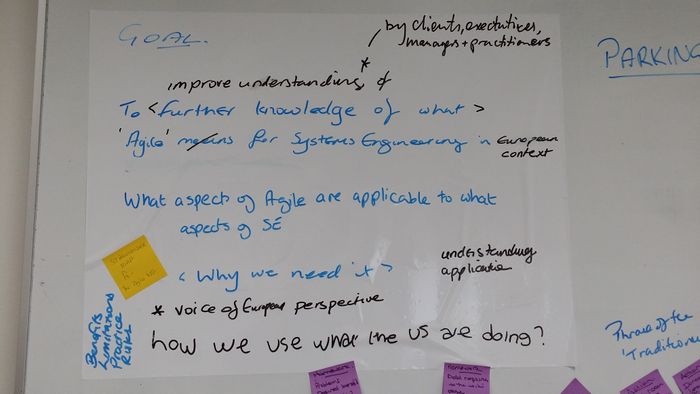 GOAL.
by clients, executives,
managers + practitioners
PARKING
*
improve understanding &
To < further knowledge of what >
'Agile' means for Systems Engineering in European
context
What aspects of Agile are applicable to what
aspects of SE
understanding
application
< Why we need it >
* voice of European perspective
how we use what the US are doing?
Benefits
Limitations
Practice
Rules
Phrase of the
'Traditional
Homework